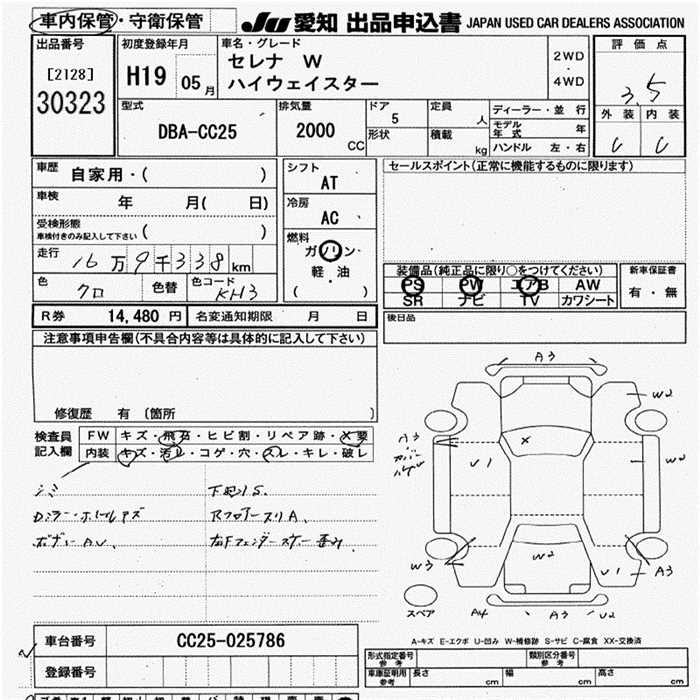 車内保管・守衛保管 JU 愛知 出品申込書 JAPAN USED CAR DEALERS ASSOCIATION
出品番号
[2128]
30323
初度登録年月
H19 05月
車名・グレード
セレナ W
ハイウェイスター
2WD
・
4WD
評価点
3.5
外装 内装
C C
型式
DBA-CC25
排気量
2000 CC
ドア
5
形状
定員
人
積載
kg
ディーラー・並行
モデル年式 年
ハンドル 左・右
車歴
自家用・( )
車検
年 月( 日)
受検形態
車検付きのみ記入して下さい ( )
走行
16万9千338km
色
クロ
色替
色コード
KH3
シフト
AT
冷房
AC
燃料
ガソリン
・
軽・油
( )
セールスポイント(正常に機能するものに限ります)
装備品(純正品に限り○をつけてください)
PS PW エアB AW
SR ナビ TV カワシート
新車保証書
有・無
後日品
R券 14,480 円 名変通知期限 月 日
注意事項申告欄(不具合内容等は具体的に記入して下さい)
修復歴 有 〔箇所 〕
検査員
記入欄
FW キズ・飛石・ヒビ割・リペア跡・X要
内装 キズ・汚レ・コゲ・穴・スレ・キレ・破レ
シミ
ボデーAU、
A3
W2
A3
X
U1
W2
W3
W2
U1
A3
スペア
A4
A3
U2
A-キズ E-エクボ U-凹み W-補修跡 S-サビ C-腐食 XX-交換済
車台番号 CC25-025786
登録番号
形式指定番号
参考
類別区分番号
参考
車庫証明用
参考
長さ cm 幅 cm 高さ cm